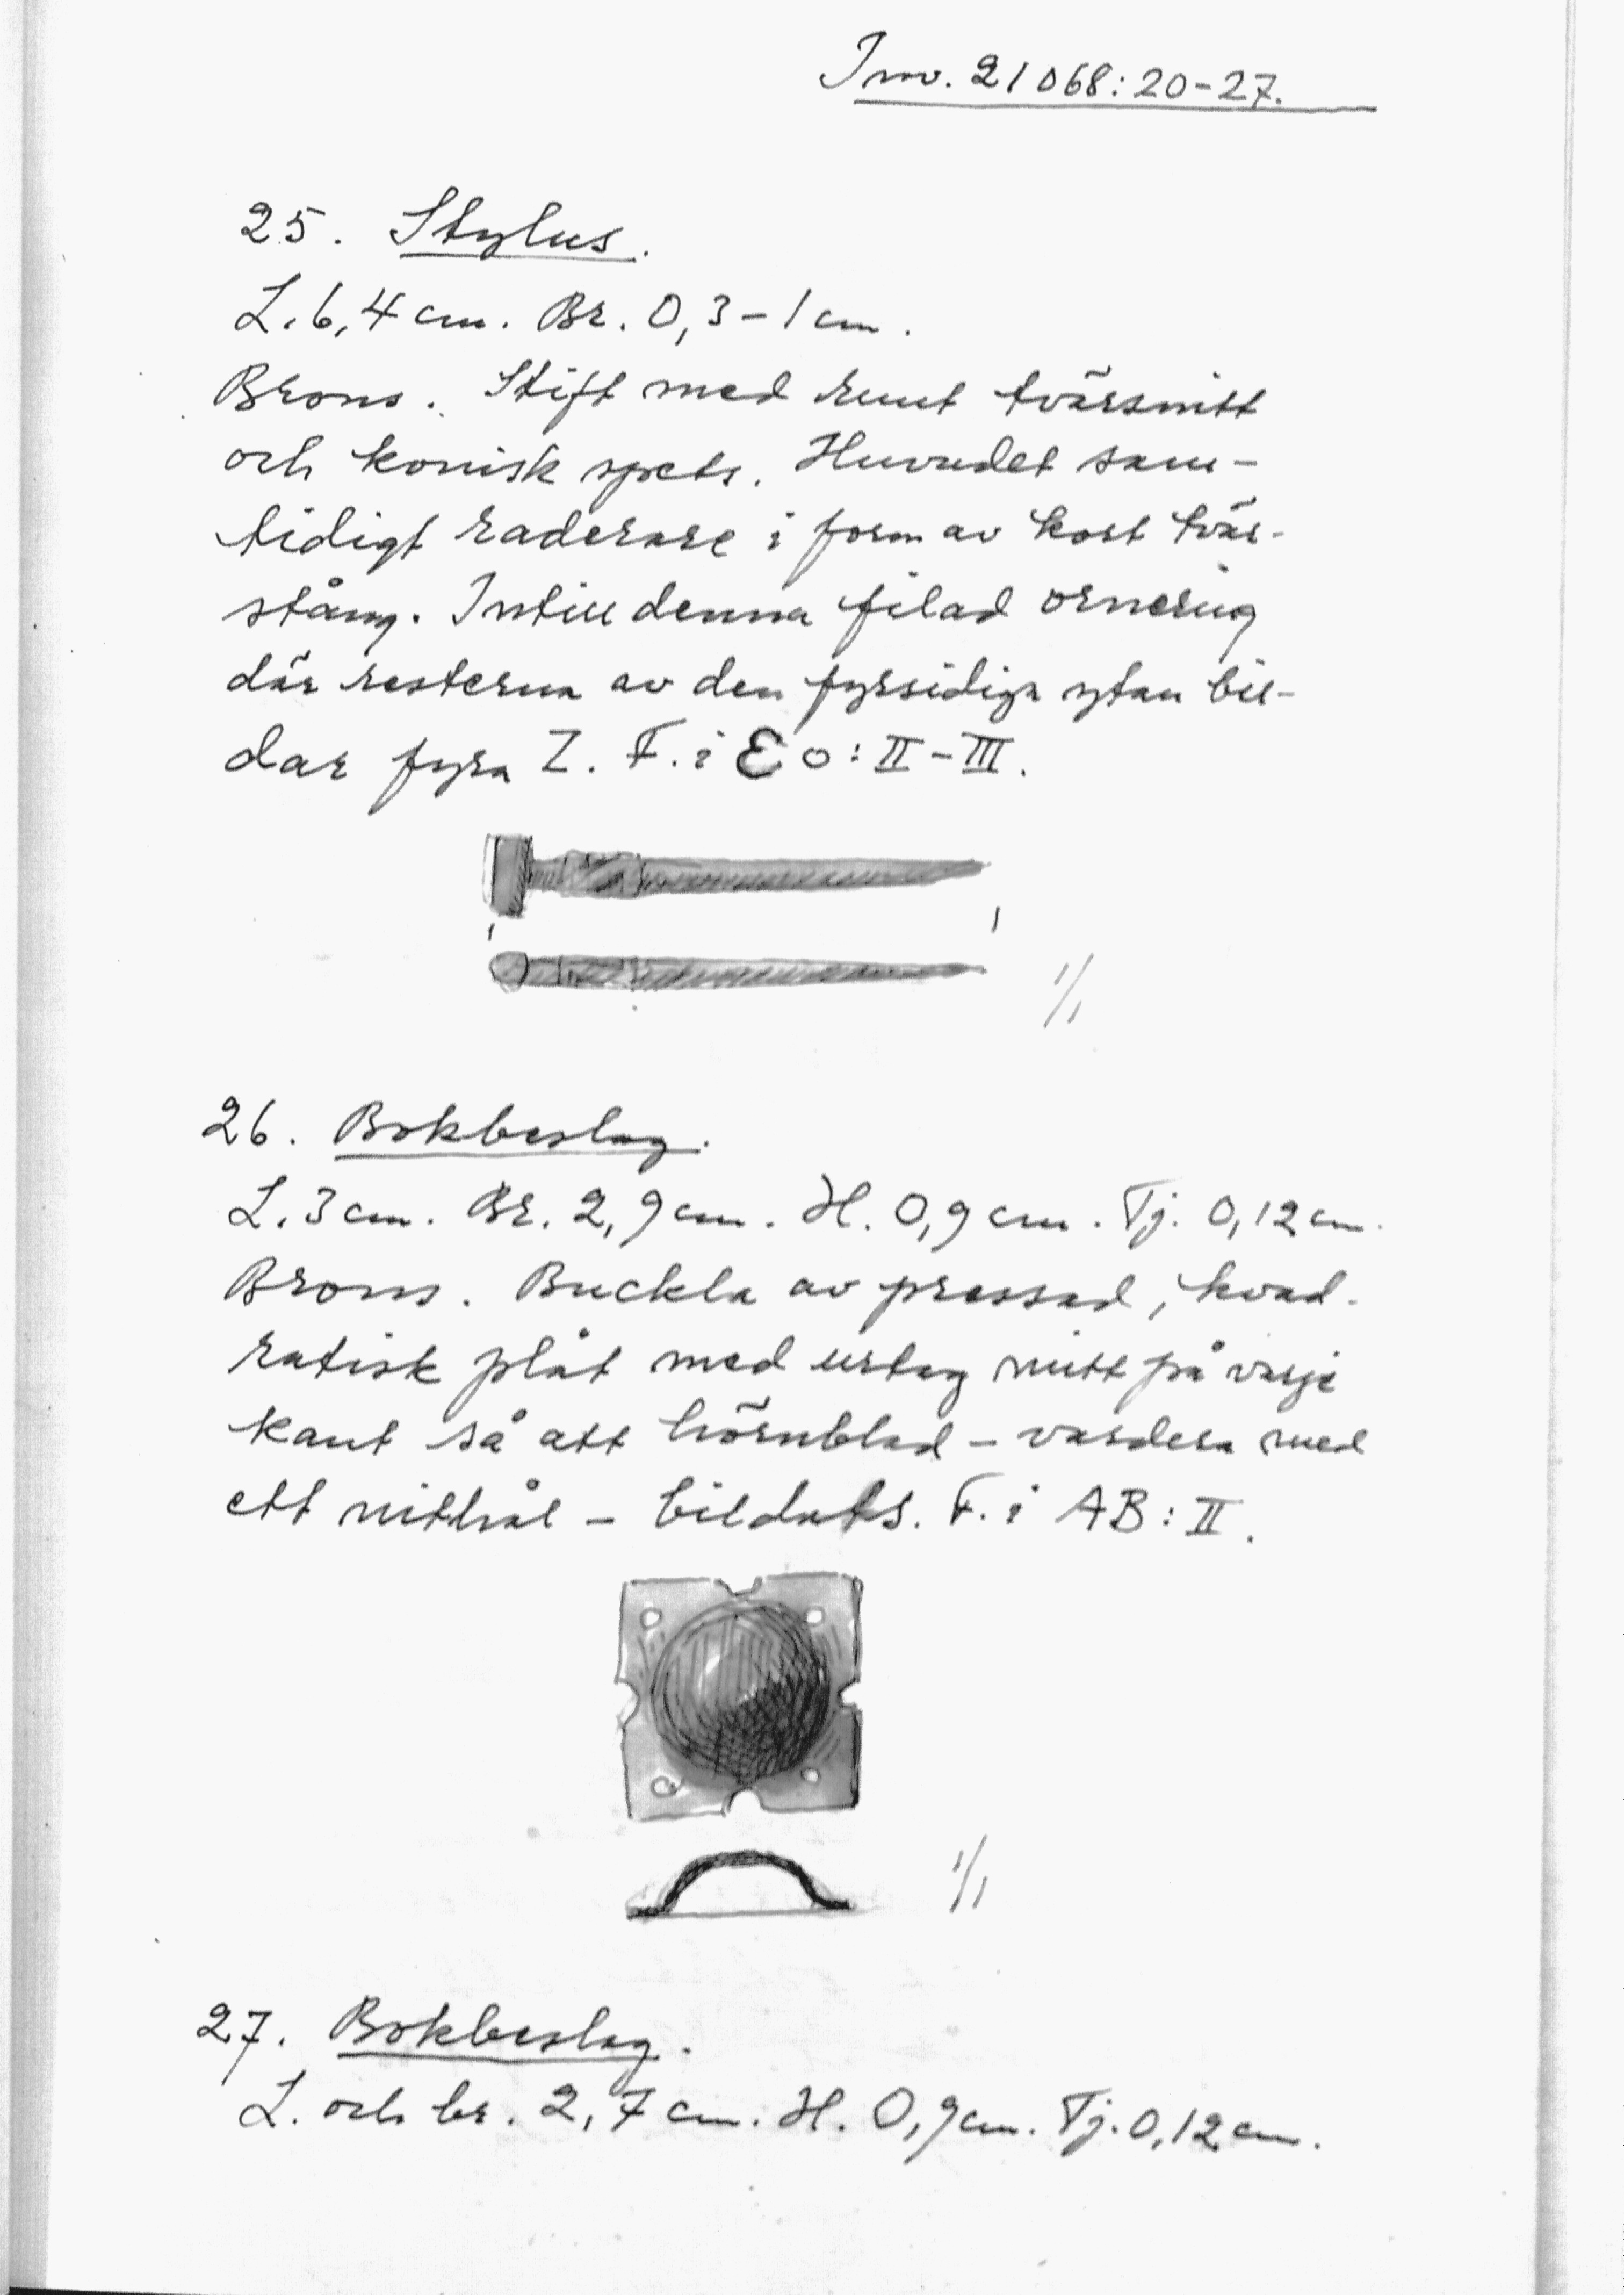 Inv. 21068:20-27.
25. Stylus.
L. 6,4 cm. Br. 0,3-1 cm.
Brons. Stift med runt tvärsnitt
och konisk spets. Huvudet sam-
tidigt raderare i form av kort tvär-
stång. Intill denna filad ornering
där resterna av den fyrsidiga ytan bil-
dar fyra Z. F. i EO: II-III.
1/1
26. Bokbeslag.
L. 3 cm. Br. 2,9 cm. H. 0,9 cm. Tj. 0,12 cm.
Brons. Buckla av pressad, kvad-
ratisk plåt med urtag mitt på varje
kant så att hörnblad - vardera med
ett nithål - bildats. F. i AB: II.
1/1
27. Bokbeslag.
L. och br. 2,7 cm. H. 0,9 cm. Tj. 0,12 cm.